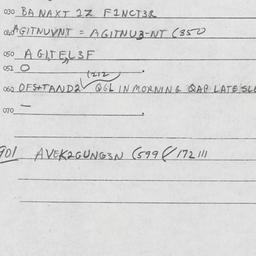 030 BA NAXT 1Z F2NCT3R
040 AGITNUVNT = AGITNU3-NT (350
050 AGITEL3F
051 O
(212
060 OFSTAND2 QGL IN MORNING QAP LATE SLE
070 —
901 AVEK2GUNG3N (599 (172 111